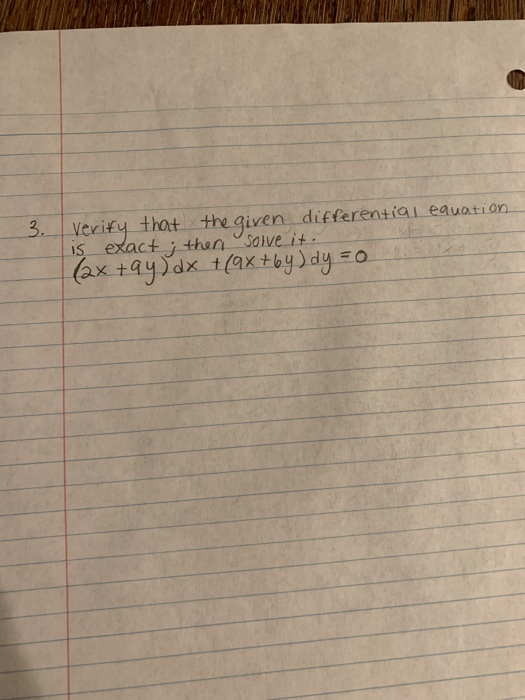 3. Verify that the given differential equation
is exact; then solve it.
(2x +9y)dx +(9x+6y)dy =0